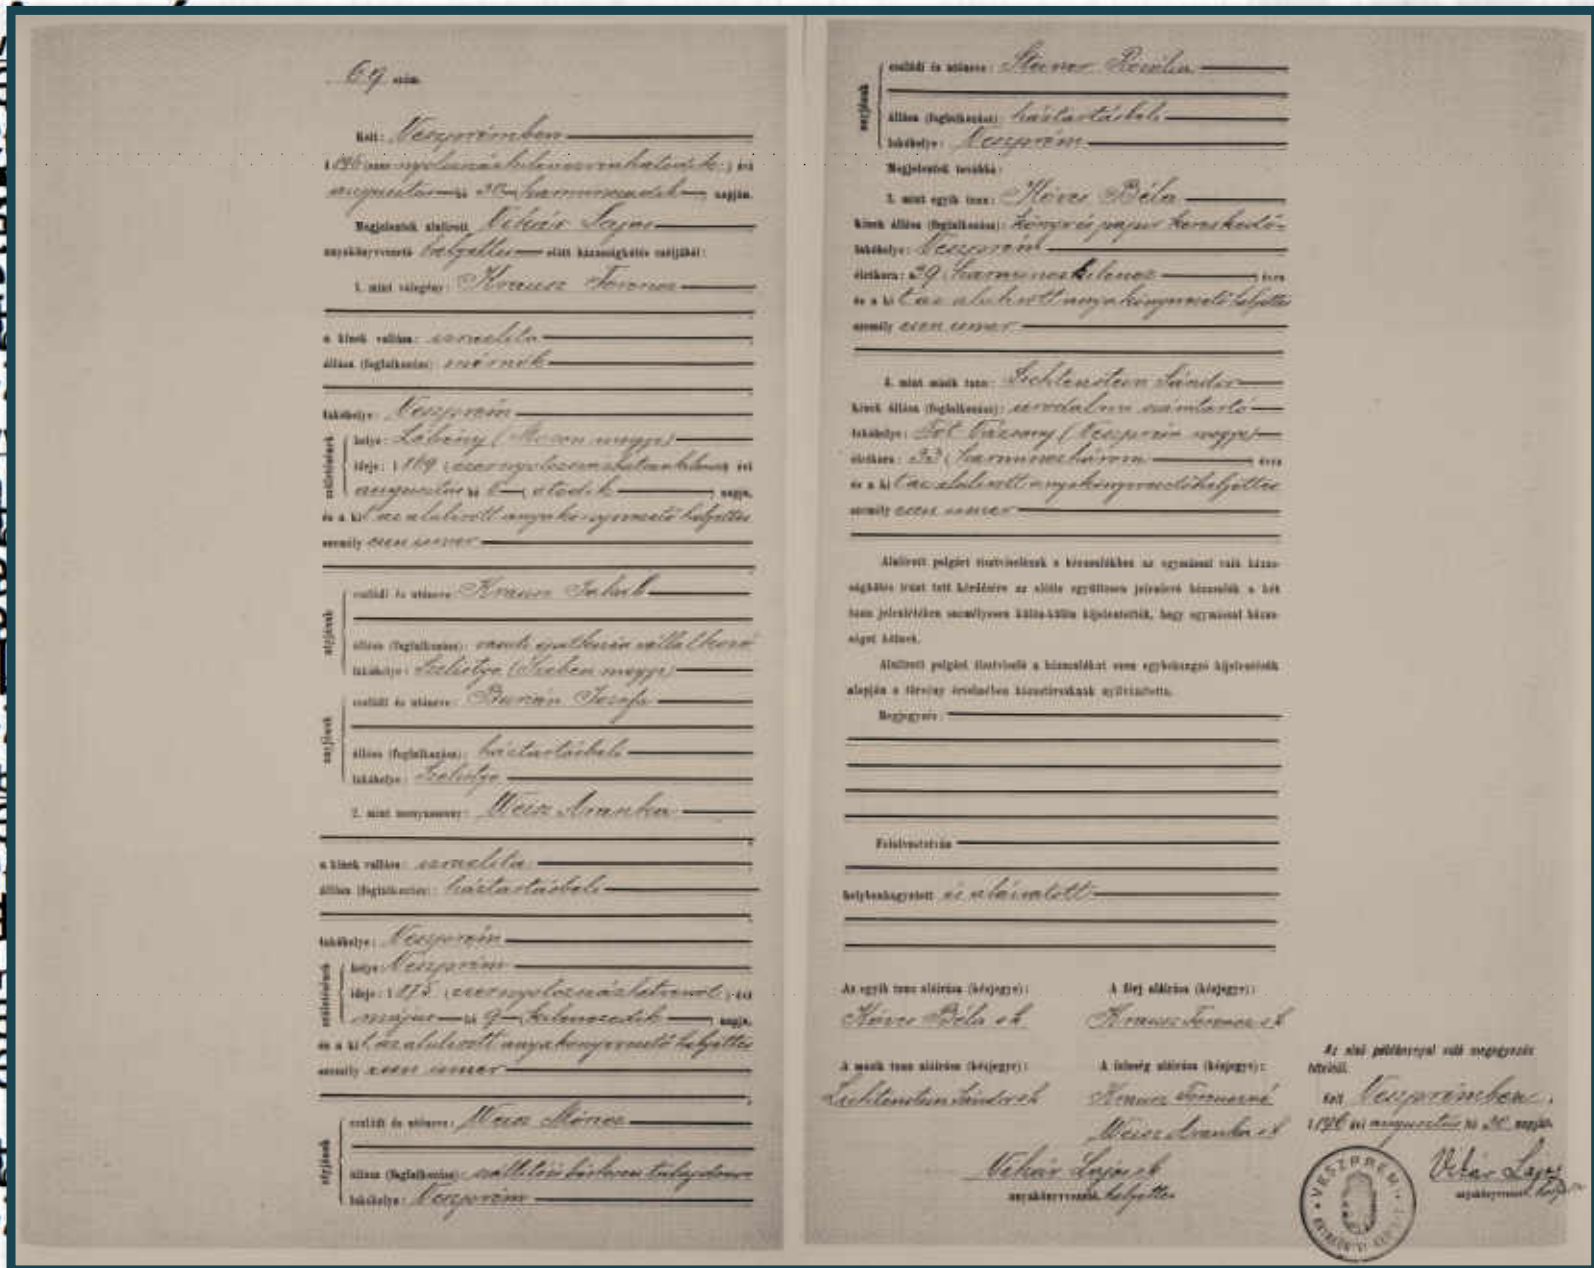 69 szám.
Kelt: Veszprémben
1896 (ezer nyolczszázkilenczvenhatodik) évi
augusztus hó 30 harminczadik napján.
Megjelentek alulírott Vihár Lajos
anyakönyvvezető helyettes előtt házasságkötés czéljából:
1. mint vőlegény: Krausz Ferencz
a kinek vallása: izraelita
állása (foglalkozás): mérnök
lakóhelye: Veszprém
születésének
helye: Lébény (Moson megye)
ideje: 1869 (ezernyolczszázhatvankilencz évi
augusztus hó 5 ötödik napja,
és a kit az alulirott anyakönyvvezető helyettes
személyesen ismer
atyjának
családi és utóneve: Krausz Jakab
állása (foglalkozás): vasuti építkezési vállalkozó
lakóhelye: Szelistye (Szeben megye)
anyjának
családi és utóneve: Jozefa
állása (foglalkozás): háztartásbeli
lakóhelye: Szelistye
2. mint menyasszony: Weisz Aranka
a kinek vallása: izraelita
állása (foglalkozás): háztartásbeli
lakóhelye: Veszprém
születésének
helye: Veszprém
ideje: 1875 (ezernyolczszázhetvenöt) évi
május hó 9 kilenczedik napja,
és a kit az alulirott anyakönyvvezető helyettes
személyesen ismer
atyjának
családi és utóneve: Weisz Móricz
állása (foglalkozás): szállítási tulajdonos
lakóhelye: Veszprém
anyjának
családi és utóneve: Steiner Rozália
állása (foglalkozás): háztartásbeli
lakóhelye: Veszprém
Megjelentek továbbá:
3. mint egyik tanu: Köves Béla
kinek állása (foglalkozás): könyv és papir kereskedő
lakóhelye: Veszprém
életkora: 39 harminczkilencz éves
és a kit az alulirott anyakönyvvezető helyettes
személyesen ismer
4. mint másik tanu: Lichtenstein Sándor
kinek állása (foglalkozás): uradalmi számtartó
lakóhelye: Tót Vázsony (Veszprém megye)
életkora: 33 (harminczhárom éves
és a kit az alulirott anyakönyvvezető helyettes
személyesen ismer
Alulírott polgári tisztviselőnek a házasulókhoz az egymással való házas-
ságkötés iránt tett kérdésére az előtte együttesen jelenlevő házasulók a két
tanu jelenlétében személyesen külön-külön kijelentették, hogy egymással házas-
ságot kötnek.
Alulírott polgári tisztviselő a házasulókat ezen egybehangzó kijelentésük
alapján a törvény értelmében házastársaknak nyilvánította.
Megjegyzés:
Felolvastatván
helybenhagyatott és aláiratott
Az egyik tanu aláírása (kézjegye): A férj aláírása (kézjegye):
Köves Béla sk Krausz Ferencz sk
A másik tanu aláírása (kézjegye): A feleség aláírása (kézjegye):
Lichtenstein Sándor sk Krausz Ferenczné
Weisz Aranka sk
Vihár Lajos sk
anyakönyvvezető helyettes
Az első példánynyal való megegyezés
hiteléül.
Kelt Veszprémben,
1896 évi augusztus hó 30 napján.
Vihár Lajos
anyakönyvvezető helyettes
VESZPRÉM